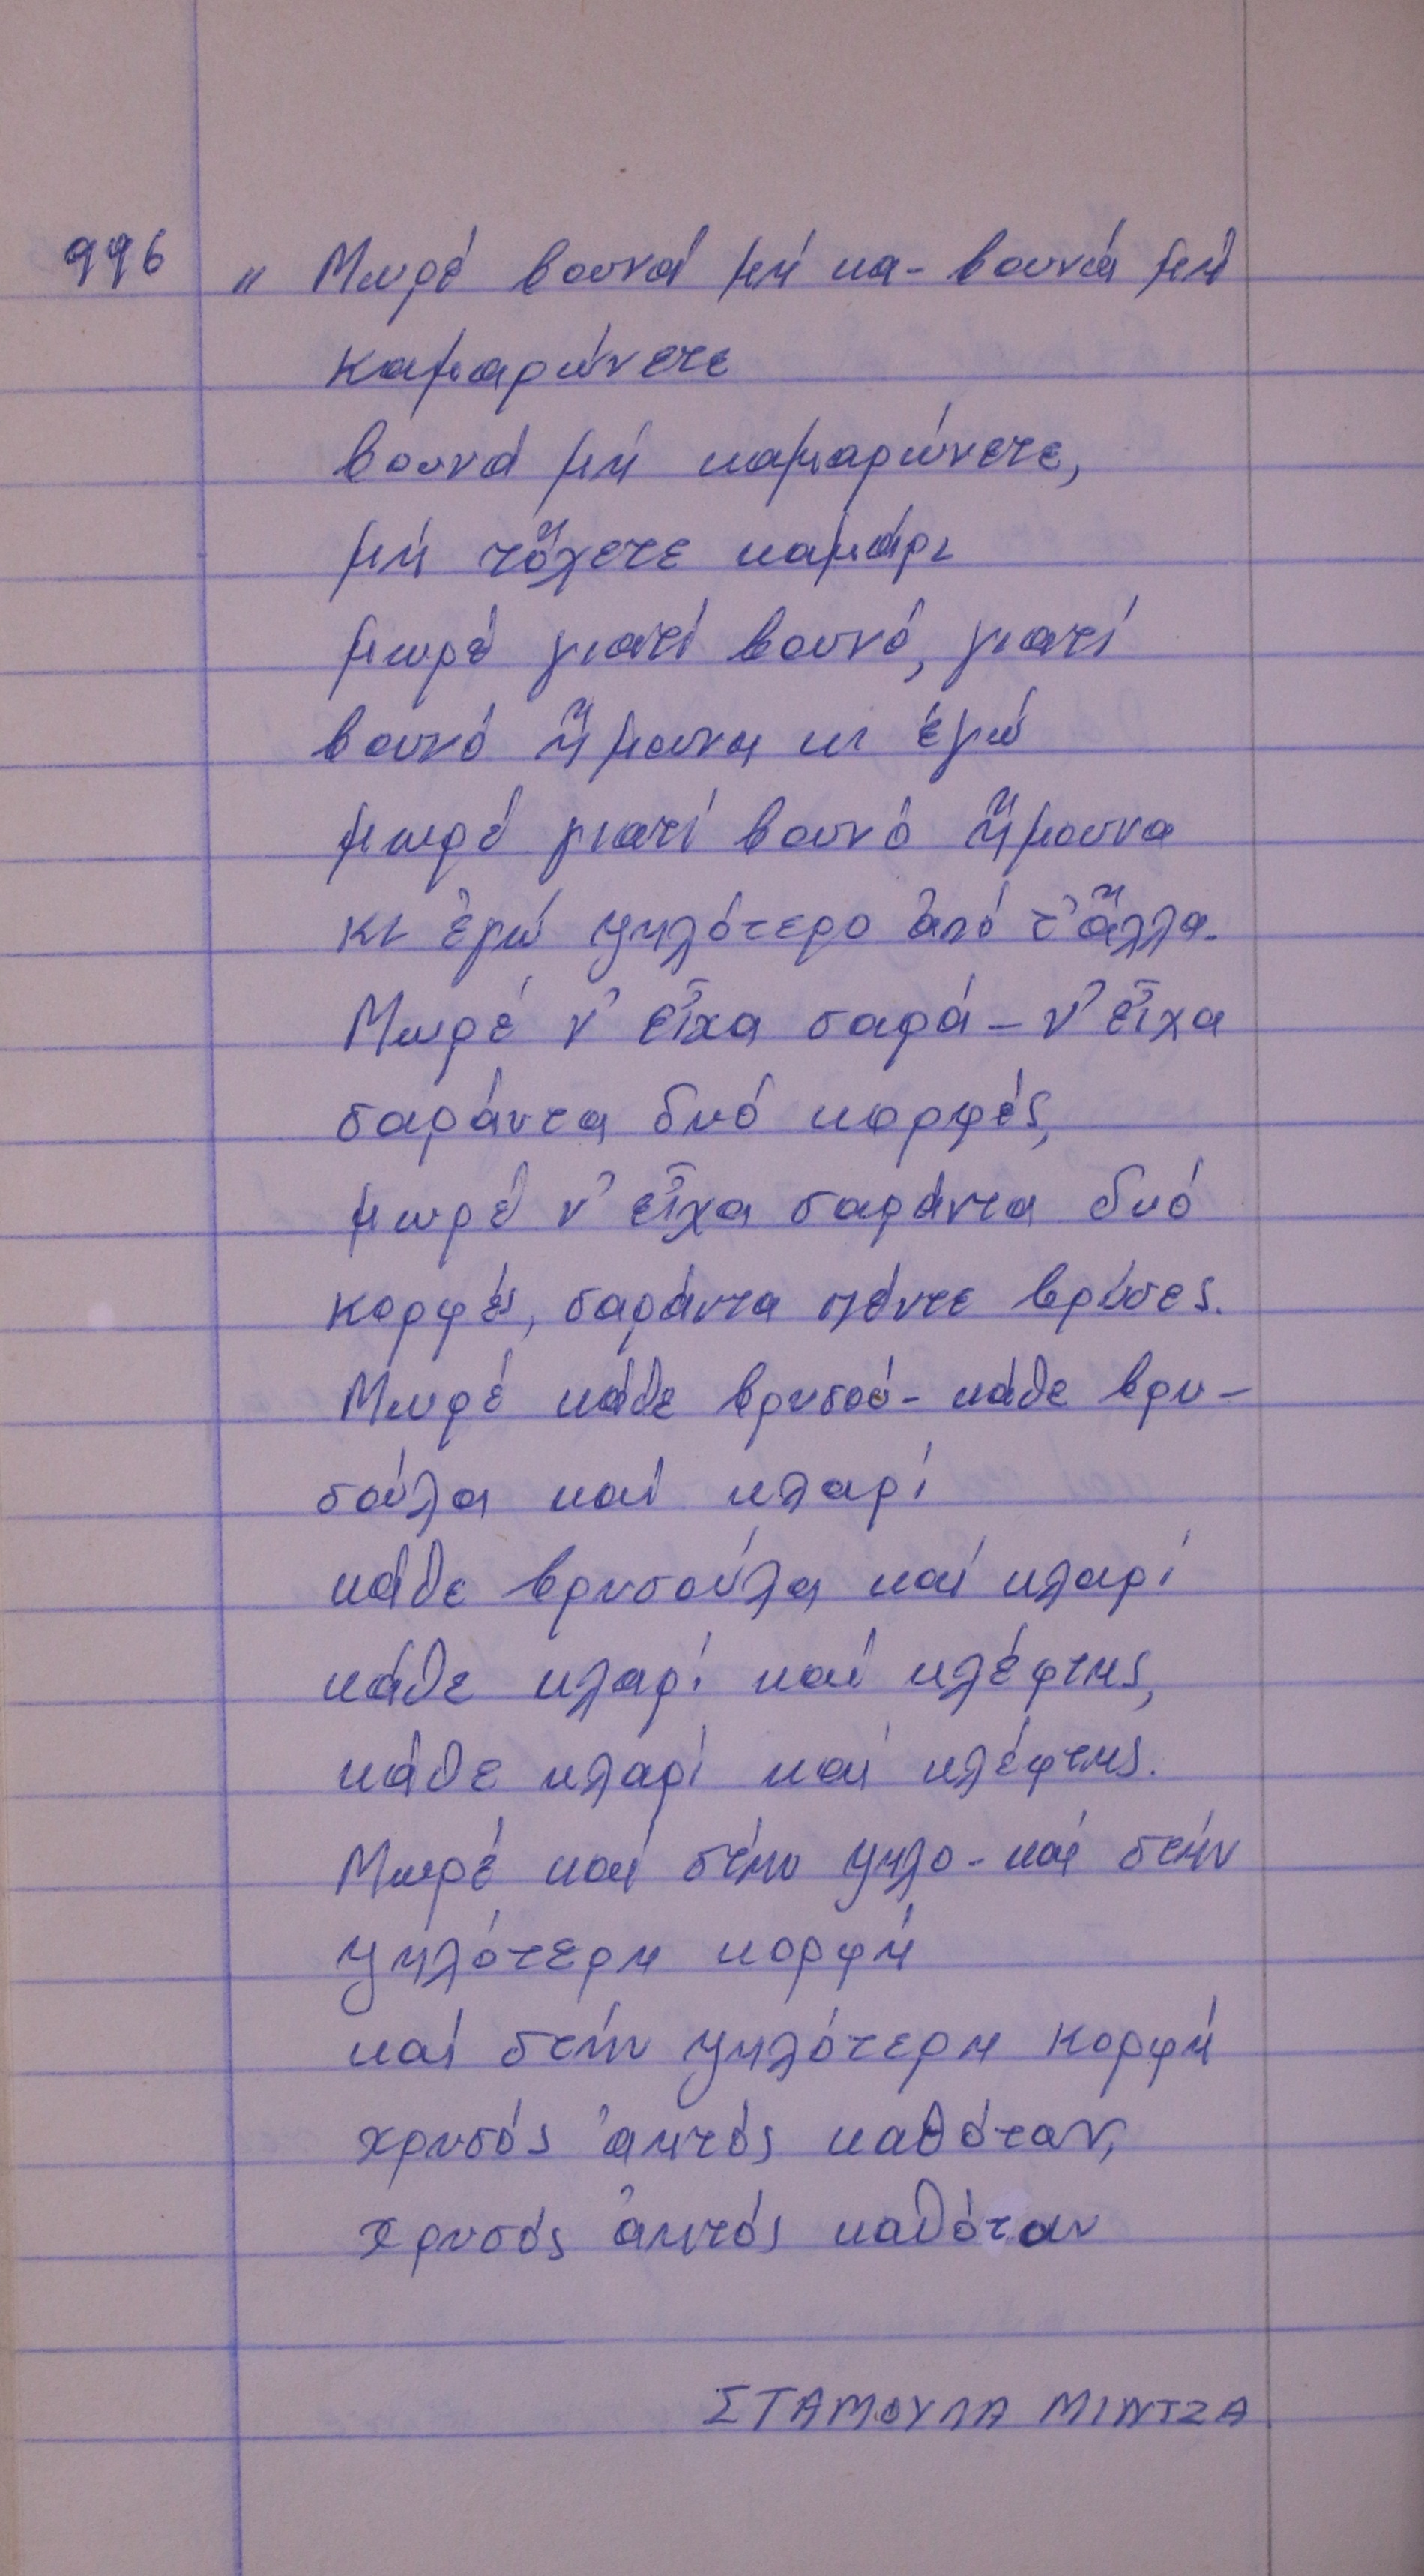 996 " Μωρέ βουνά μή κα- βουνά μή
καμαρώνετε
βουνά μή καμαρώνετε,
μή τὄχετε καμάρι
μωρέ γιατί βουνό, γιατί
βουνό ἤμουνα κι ἐγώ
μωρέ γιατί βουνό ἤμουνα
κι ἐγώ ψηλότερο ἀπό τ' ἄλλα.
Μωρέ ν' εἶχα σαρά - ν' εἶχα
σαράντα δυό κορφές,
μωρέ ν' εἶχα σαράντα δυό
κορφές, σαράντα πέντε βρύσες.
Μωρέ κάθε βρυσού- κάθε βρυ-
σούλα καί κλαρί
κάθε βρυσούλα καί κλαρί
κάθε κλαρί καί κλέφτης,
κάθε κλαρί καί κλέφτης.
Μωρέ καί στήν ψηλο- καί στήν
ψηλότερη κορφή
καί στήν ψηλότερη κορφή
χρυσός ἀητός καθόταν,
χρυσός ἀητός καθόταν
ΣΤΑΜΟΥΛΑ ΜΙΝΤΖΑ